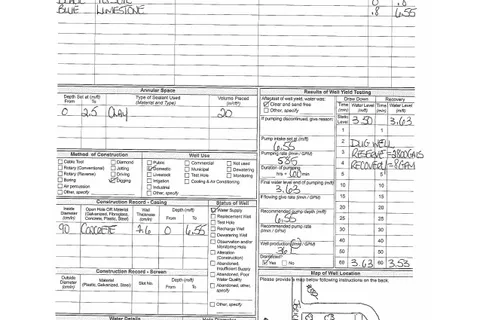 BLUE LIMESTONE .8 6.55
Annular Space
Depth Set at (m/ft) From To
Type of Sealant Used (Material and Type)
Volume Placed (m³/ft³)
0 2.5 Clay 20
Results of Well Yield Testing
After test of well yield, water was:
Clear and sand free
Other, specify
Draw Down Recovery
Time (min) Water Level (m/ft) Time (min) Water Level (m/ft)
If pumping discontinued, give reason:
Static Level 3.50 3.63
Pump intake set at (m/ft)
6.55
Pumping rate (l/min / GPM)
Duration of pumping
hrs + min
Final water level end of pumping (m/ft)
3.63
If flowing give rate (l/min / GPM)
Recommended pump depth (m/ft)
6.55
Recommended pump rate (l/min / GPM)
Well production (l/min / GPM)
Disinfected?
Yes No
1 1
2 2 DUG WELL
3 3 RESERVE
4 4 RECOVERY
5 5
10 10
15 15
20 20
25 25
30 30
40 40
50 50
60 3.63 60 3.53
Method of Construction
Cable Tool Diamond
Rotary (Conventional) Jetting
Rotary (Reverse) Driving
Boring Digging
Air percussion
Other, specify
Well Use
Public Commercial Not used
Domestic Municipal Dewatering
Livestock Test Hole Monitoring
Irrigation Cooling & Air Conditioning
Industrial
Other, specify
Construction Record - Casing
Inside Diameter (cm/in)
Open Hole OR Material (Galvanized, Fibreglass, Concrete, Plastic, Steel)
Wall Thickness (cm/in)
Depth (m/ft) From To
90 CONCRETE 7.6 0 6.55
Status of Well
Water Supply
Replacement Well
Test Hole
Recharge Well
Dewatering Well
Observation and/or Monitoring Hole
Alteration (Construction)
Abandoned, Insufficient Supply
Abandoned, Poor Water Quality
Abandoned, other, specify
Other, specify
Construction Record - Screen
Outside Diameter (cm/in)
Material (Plastic, Galvanized, Steel)
Slot No.
Depth (m/ft) From To
Map of Well Location
Please provide a map below following instructions on the back.
Water Details
Hole Diameter